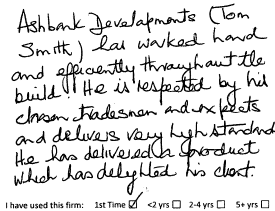 Ashbank Developments (Tom
Smith) has worked hard
and efficiently throughout the
build. He is respected by his
chosen tradesmen and experts
and delivers very high standard
He has delivered a product
which has delighted his client.
I have used this firm: 1st Time ☑ <2 yrs ☐ 2-4 yrs ☐ 5+ yrs ☐